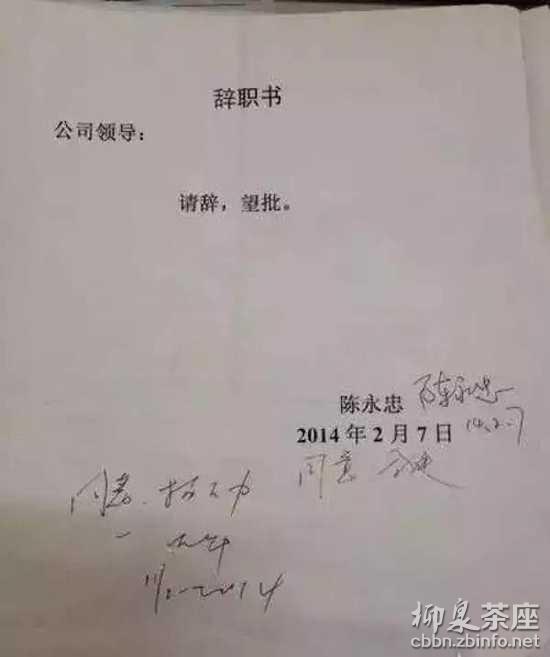 辞职书
公司领导：
请辞，望批。
陈永忠 陈永忠
2014 年 2 月 7 日 14.2.7
同意
同意
柳泉茶座
cbbn.zbinfo.net